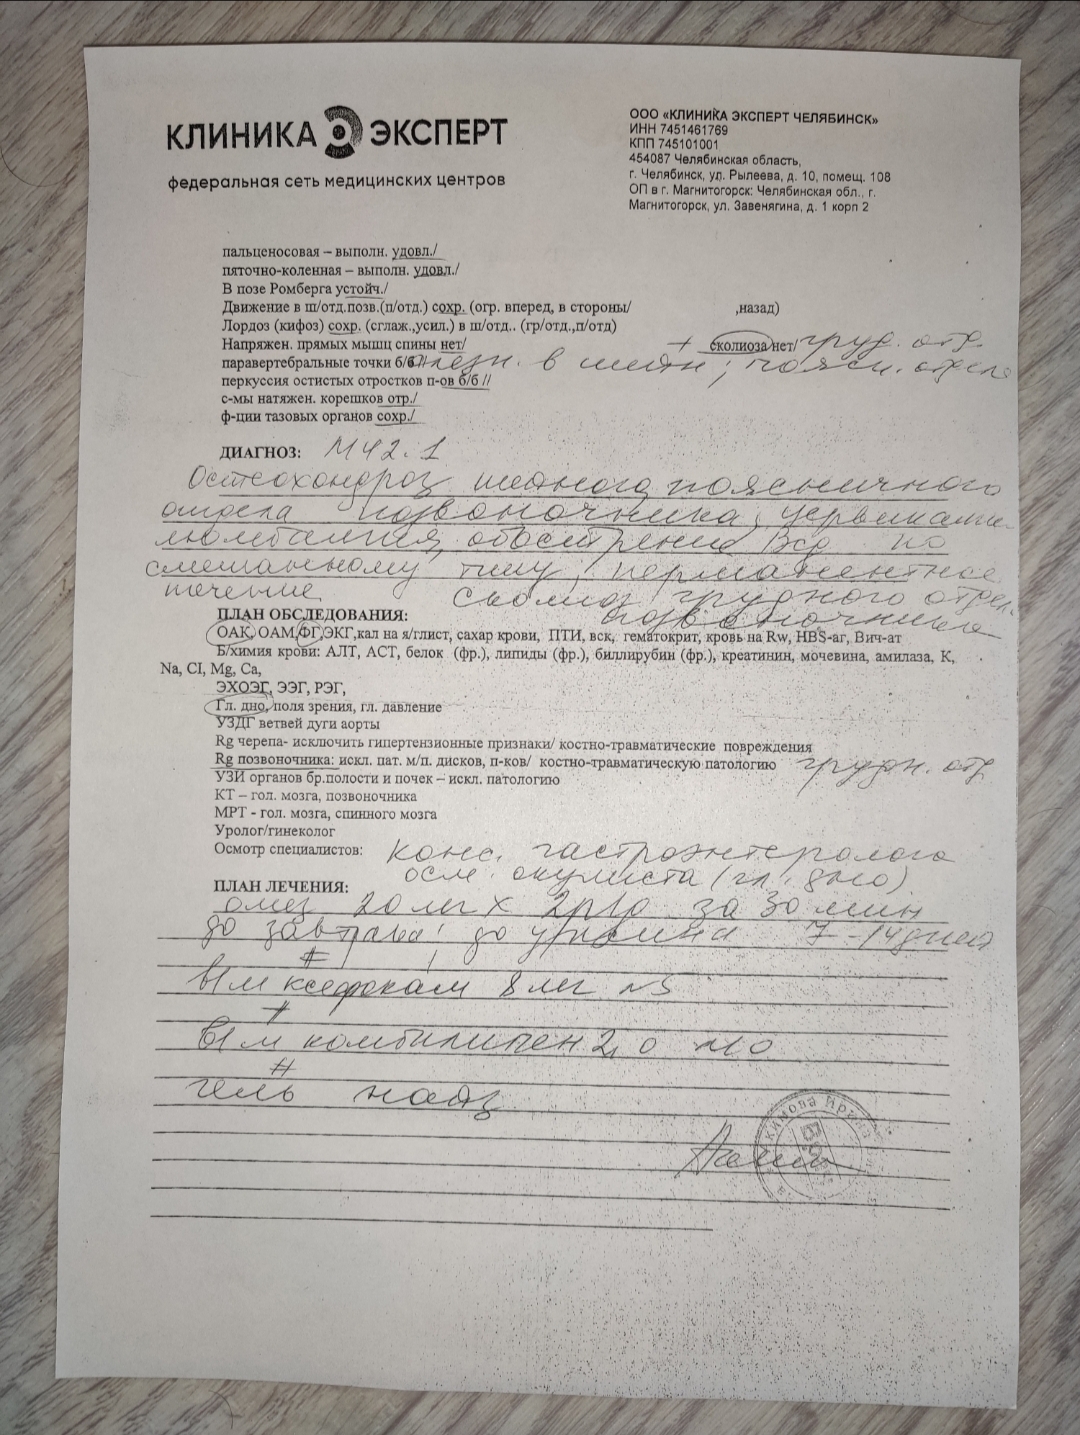 КЛИНИКА ЭКСПЕРТ
федеральная сеть медицинских центров
ООО «КЛИНИКА ЭКСПЕРТ ЧЕЛЯБИНСК»
ИНН 7451461769
КПП 745101001
454087 Челябинская область,
г. Челябинск, ул. Рылеева, д. 10, помещ. 108
ОП в г. Магнитогорск: Челябинская обл., г.
Магнитогорск, ул. Завенягина, д. 1 корп 2
пальценосовая – выполн. удовл./
пяточно-коленная – выполн. удовл./
В позе Ромберга устойч./
Движение в ш/отд.позв.(п/отд.) сохр. (огр. вперед, в стороны/ ,назад)
Лордоз (кифоз) сохр. (сглаж.,усил.) в ш/отд.. (гр/отд.,п/отд)
Напряжен. прямых мышц спины нет/ + сколиоза/нет/ груд. отд.
паравертебральные точки б/б // болезн. в шейн; поясн. отделе
перкуссия остистых отростков п-ов б/б //
с-мы натяжен. корешков отр./
ф-ции тазовых органов сохр./
ДИАГНОЗ: М42.1
Остеохондроз шейного, поясничного
отдела позвоночника, цервикалгия
люмбалгия, обострение ВСД по
смешанному типу, перманентное
течение. Сколиоз грудного отдела
позвоночника
ПЛАН ОБСЛЕДОВАНИЯ:
ОАК, ОАМ,ФГ,ЭКГ,кал на я/глист, сахар крови, ПТИ, вск, гематокрит, кровь на Rw, HBS-аг, Вич-ат
Б/химия крови: АЛТ, АСТ, белок (фр.), липиды (фр.), биллирубин (фр.), креатинин, мочевина, амилаза, К,
Na, Cl, Mg, Ca,
ЭХОЭГ, ЭЭГ, РЭГ,
Гл. дно, поля зрения, гл. давление
УЗДГ ветвей дуги аорты
Rg черепа- исключить гипертензионные признаки/ костно-травматические повреждения
Rg позвоночника: искл. пат. м/п. дисков, п-ков/ костно-травматическую патологию грудн. отд
УЗИ органов бр.полости и почек – искл. патологию
КТ – гол. мозга, позвоночника
МРТ - гол. мозга, спинного мозга
Уролог/гинеколог
Осмотр специалистов: конс. гастроэнтеролога
осм. окулиста (гл. дно)
ПЛАН ЛЕЧЕНИЯ:
омез 20 мг х 2р/д за 30 мин
до завтрака, до ужина 7-14 дней
#
В/м ксефокам 8 мг №5
#
В/м комбилипен 2,0 №10
#
гель наяз